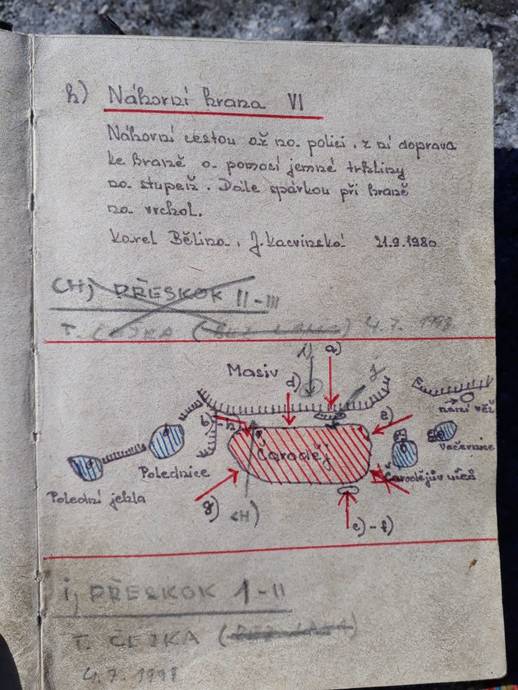 h) Náhorní hrana VI
Náhorní cestou až na polici, z ní doprava
ke hraně a pomocí jemné trhliny
na stupeň. Dále spárkou při hraně
na vrchol.
Karel Bělina, J. Kacvinská 21.9.1980
CH) PŘESKOK II-III
T. ČEJKA 4.7. 1998
i) a)
Masiv
j
d)
b)-h) e)
ranní věž
Čaroděj
Vačernice
Polednice
Čarodějův učeň
Polední jehla
g) CH) c)-f)
i, PŘESKOK 1-II
T. ČEJKA
4.7. 1998